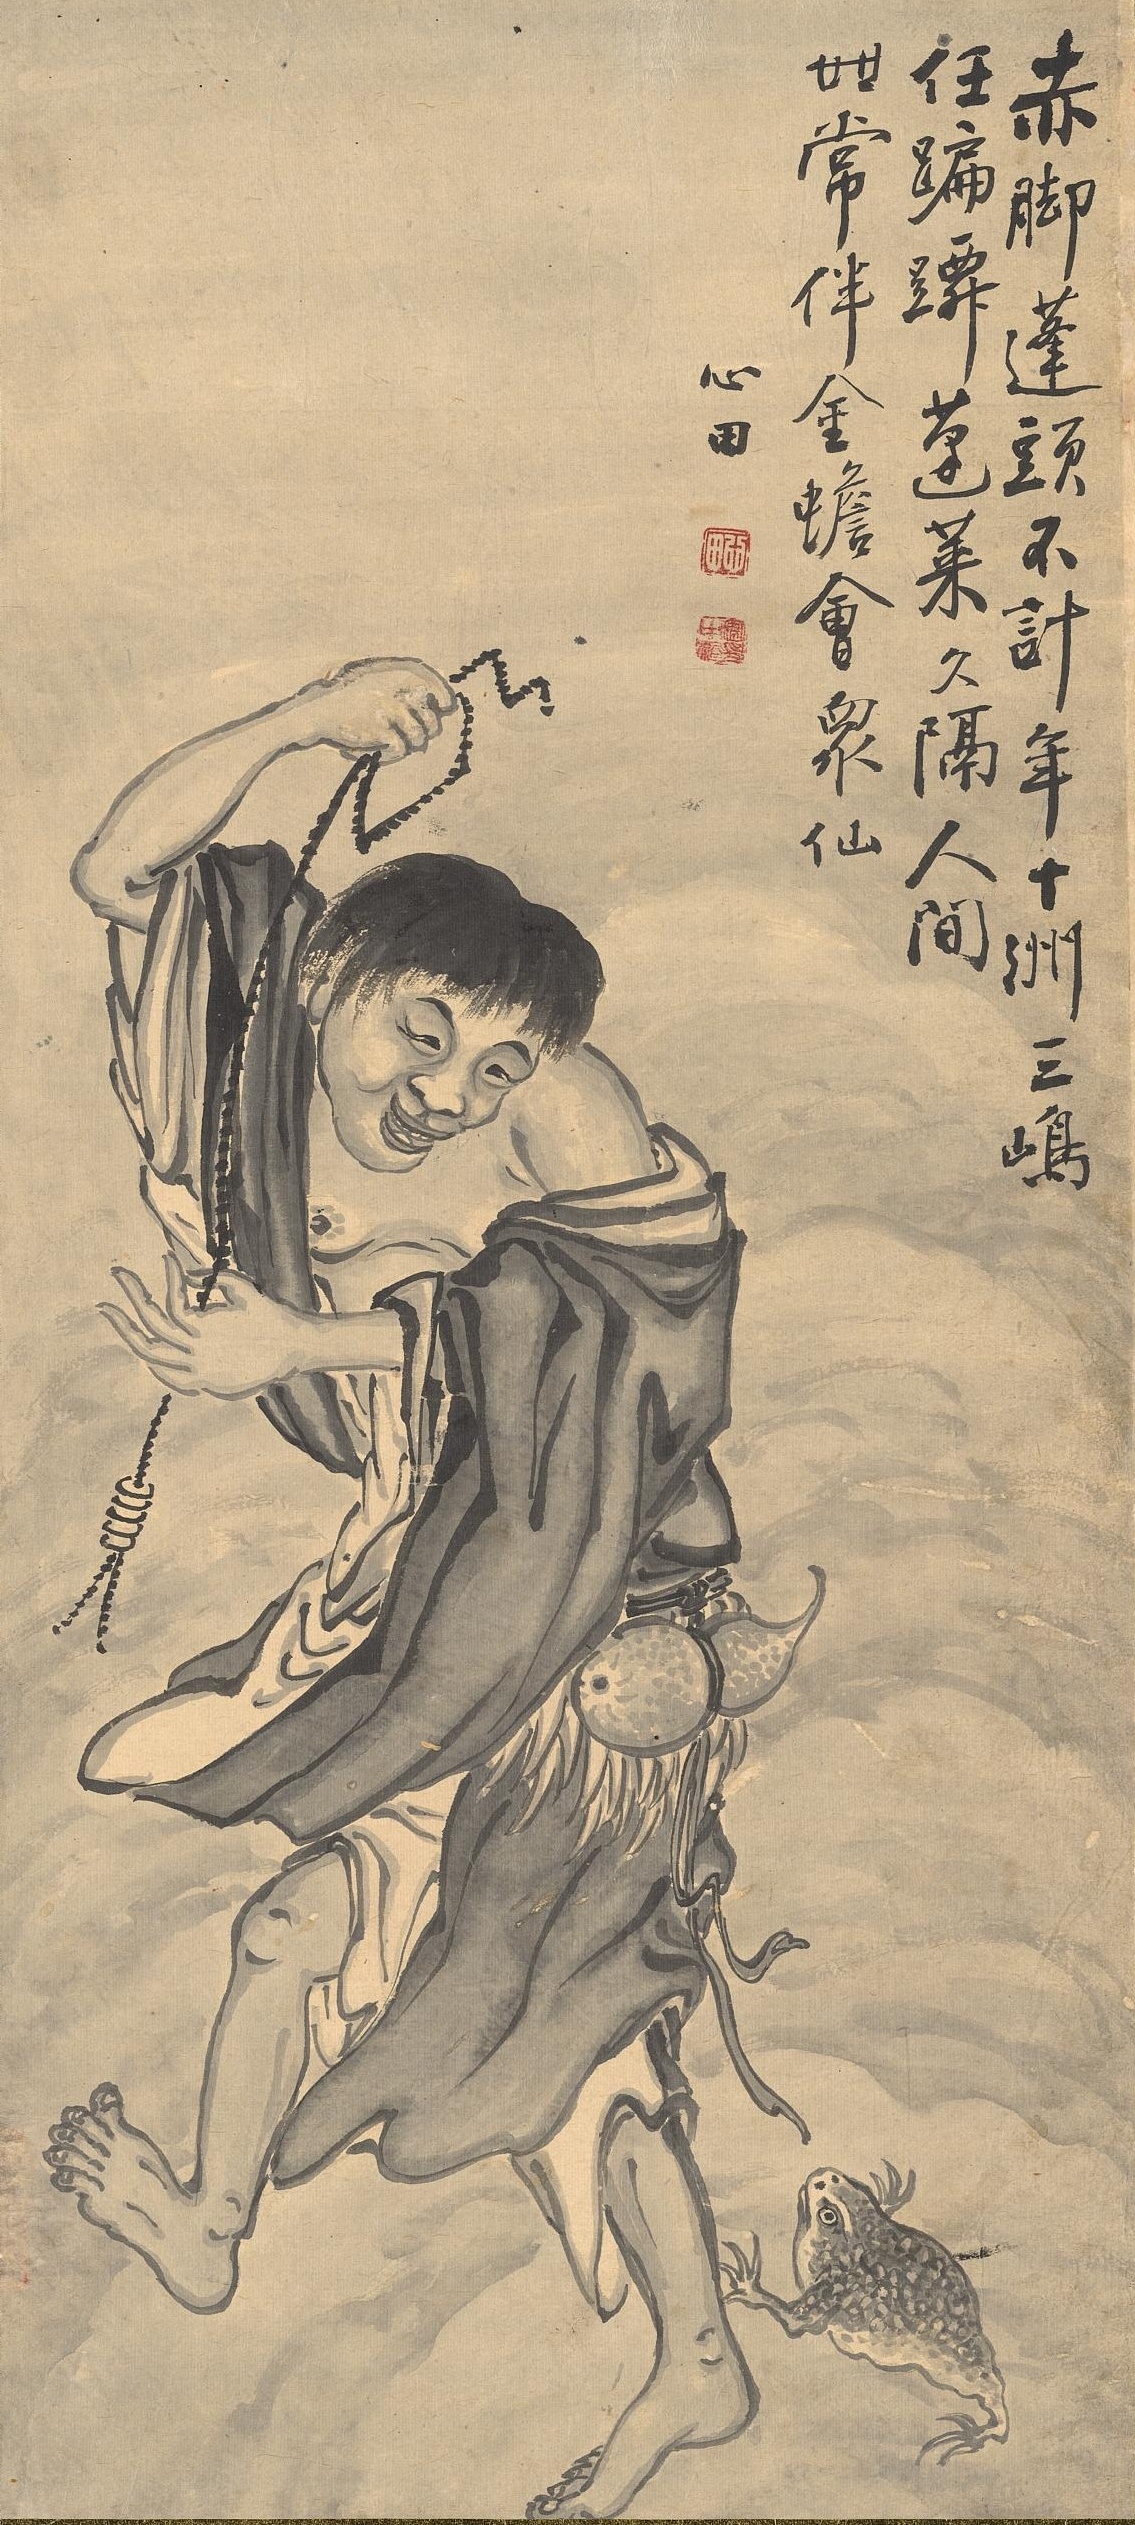 赤脚蓬頭不計年十洲三嶋
任蹁躚蓬莱久隔人間
世常伴金蟾會衆仙
心田